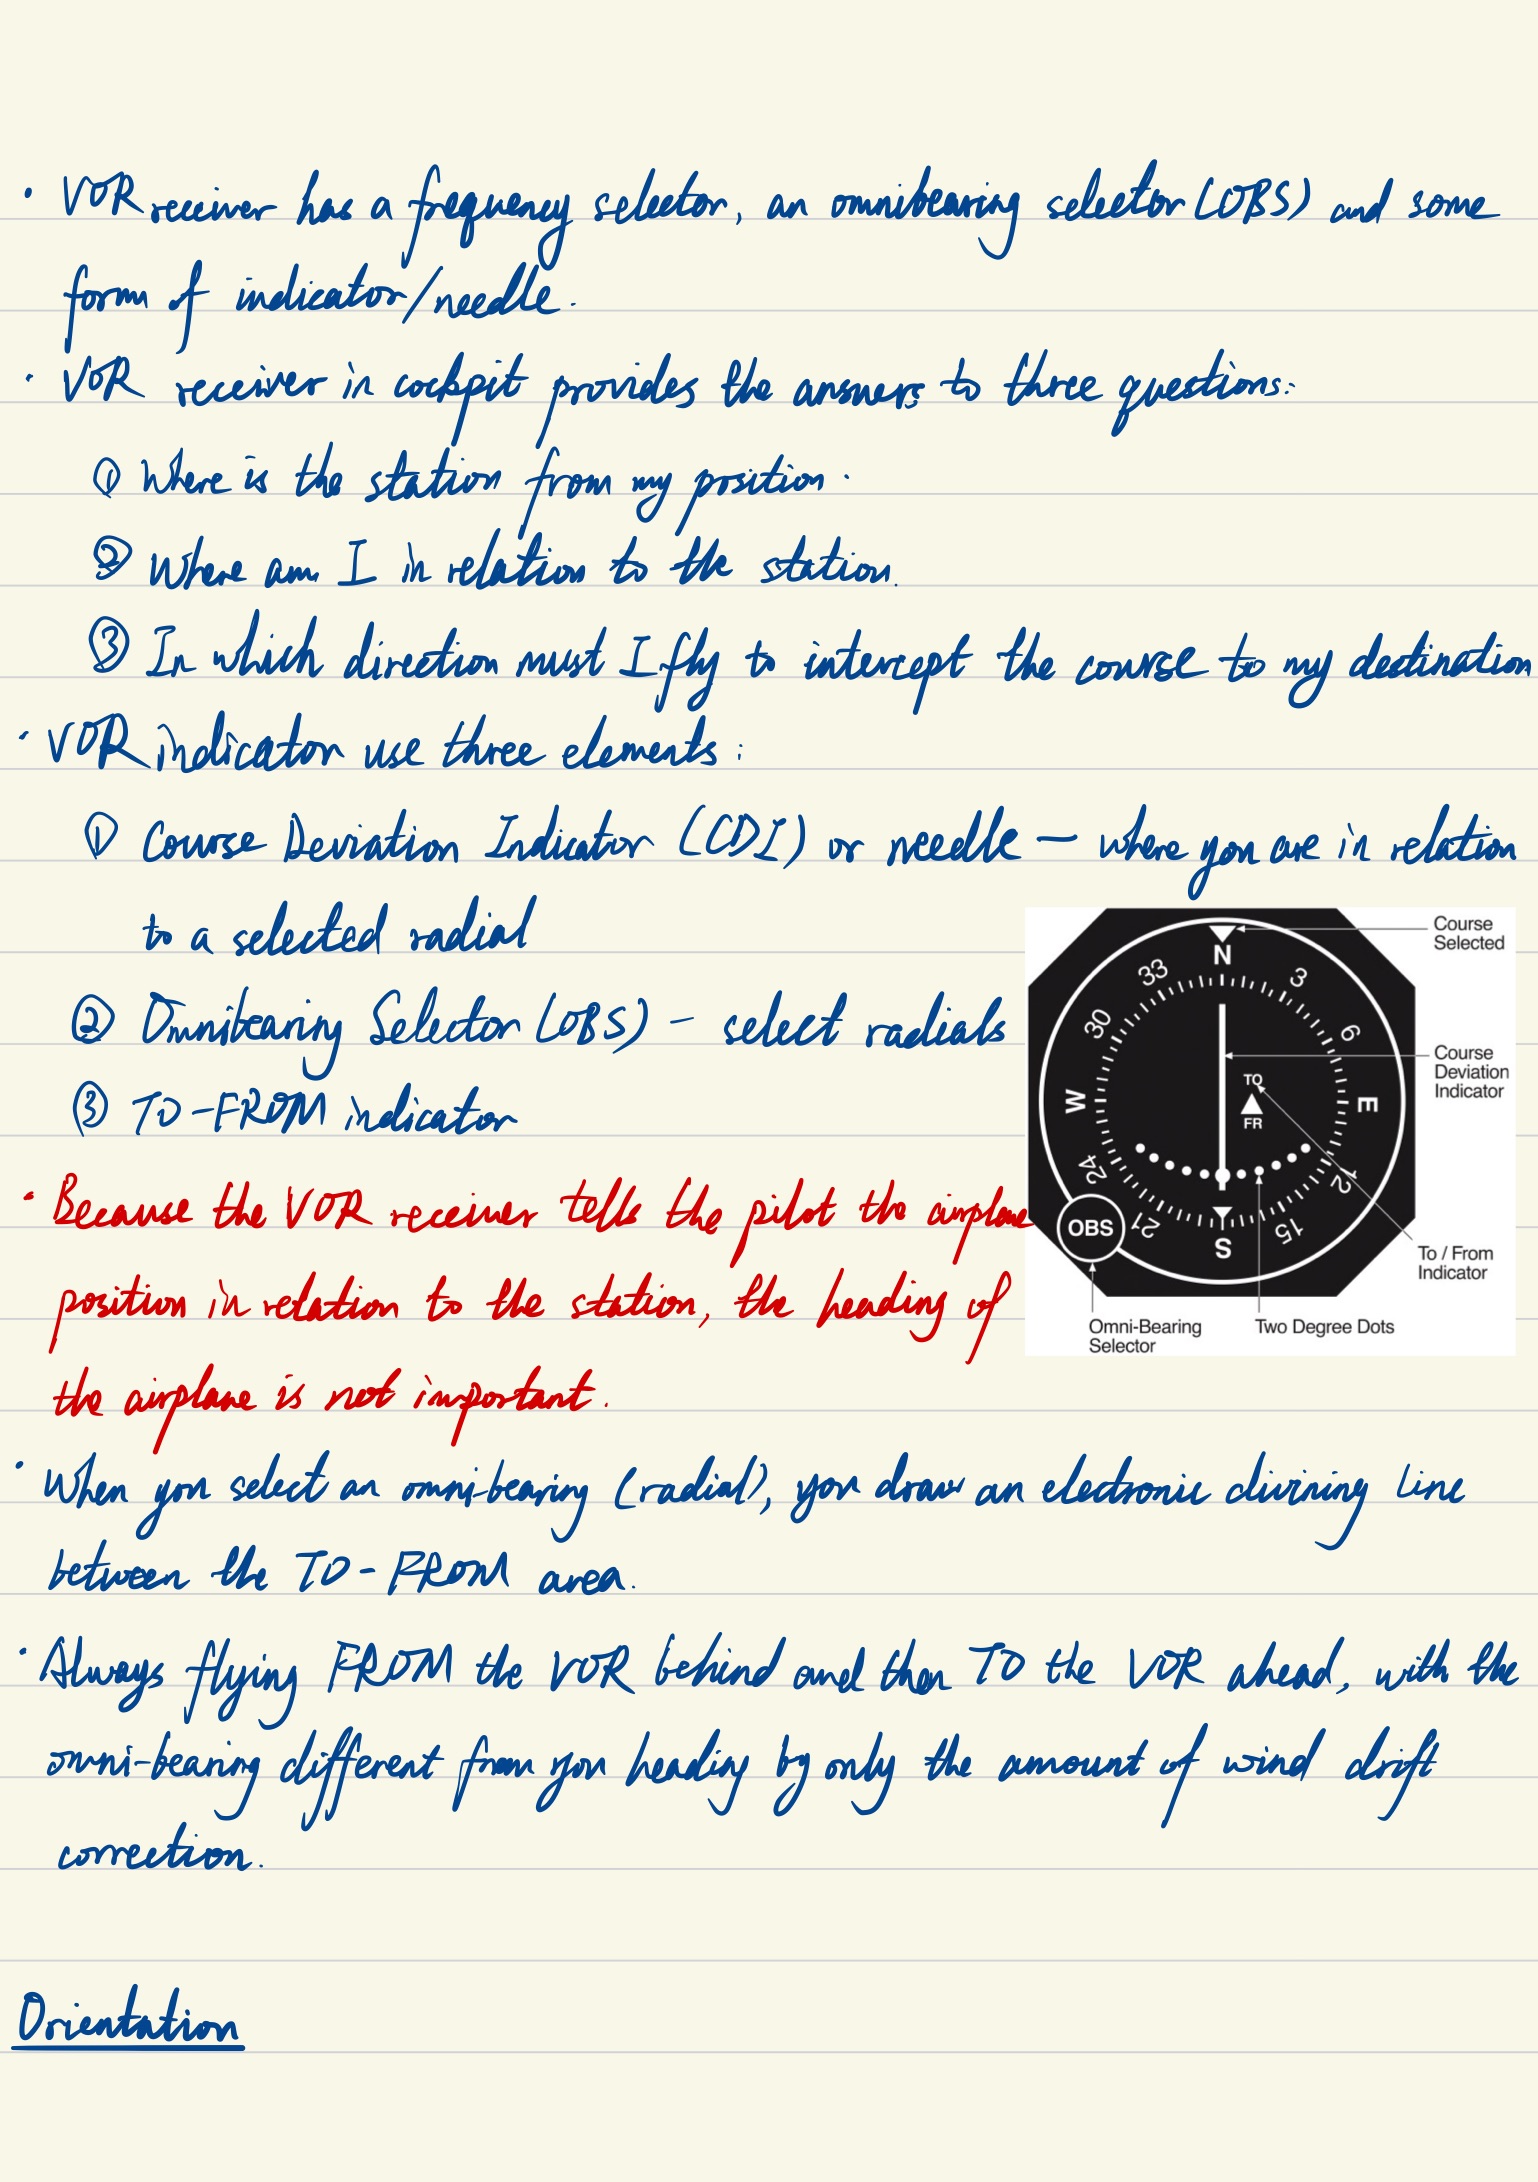 · VOR receiver has a frequency selector, an omnibearing selector (OBS) and some
form of indicator/needle.
· VOR receiver in cockpit provides the answers to three questions:
① Where is the station from my position.
② Where am I in relation to the station.
③ In which direction must I fly to intercept the course to my destination
· VOR indicator use three elements:
① Course Deviation Indicator (CDI) or needle — where you are in relation
to a selected radial
② Omnibearing Selector (OBS) - select radials
③ TO-FROM indicator
Course
Selected
N
33
3
30
6
Course
Deviation
Indicator
TO
FR
W
E
24
12
OBS
21
15
S
To / From
Indicator
Omni-Bearing
Selector
Two Degree Dots
· Because the VOR receiver tells the pilot the airplane
position in relation to the station, the heading of
the airplane is not important.
· When you select an omni-bearing (radial), you draw an electronic line
between the TO-FROM area.
· Always flying FROM the VOR behind and then TO the VOR ahead, with the
omni-bearing different from you heading by only the amount of wind drift
correction.
Orientation